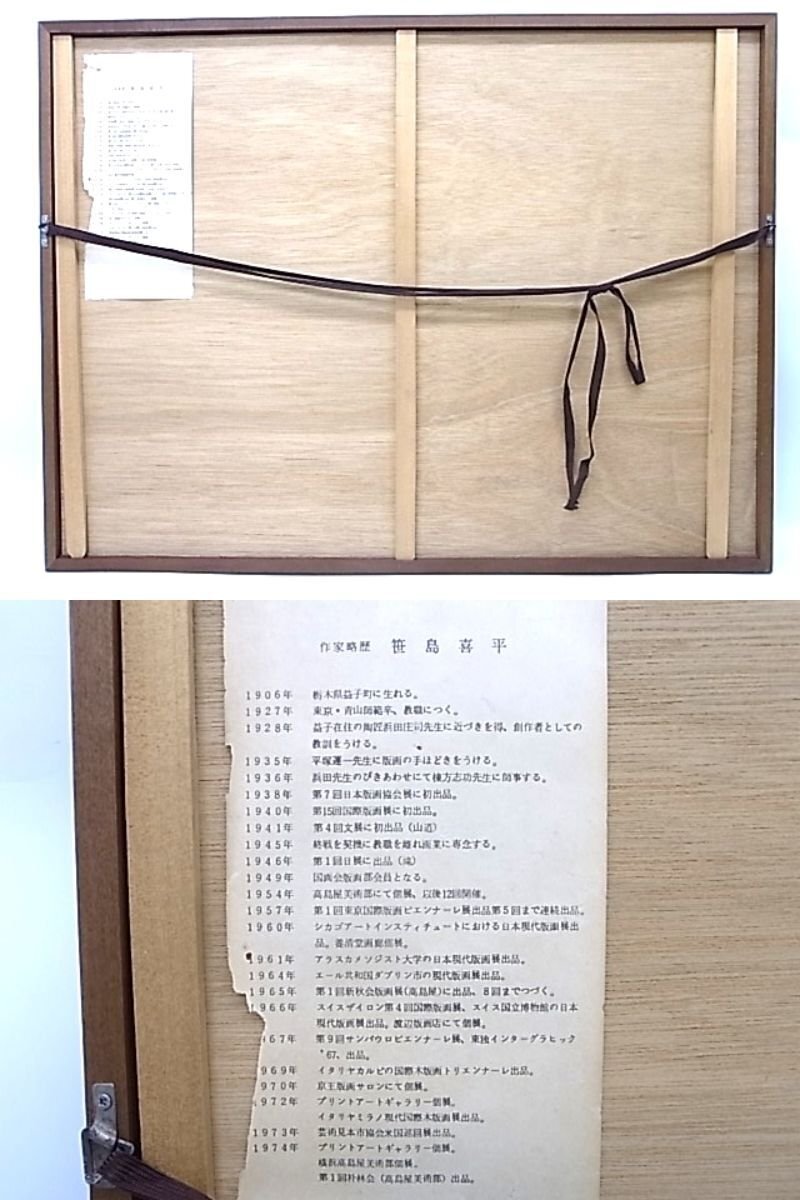 作家略歴 笹島喜平
1906年 栃木県益子町に生れる。
1927年 東京・青山師範卒、教職につく。
1928年 益子在住の陶匠浜田庄司先生に近づきを得、創作者としての
教訓をうける。
1935年 平塚運一先生に版画の手ほどきをうける。
1936年 浜田先生のひきあわせにて棟方志功先生に師事する。
1938年 第7回日本版画協会展に初出品。
1940年 第15回国際版画展に初出品。
1941年 第4回文展に初出品(山道)
1945年 終戦を契機に教職を離れ画業に専念する。
1946年 第1回日展に出品(滝)
1949年 国画会版画部会員となる。
1954年 高島屋美術部にて個展、以後12回開催。
1957年 第1回東京国際版画ビエンナーレ展出品第5回まで連続出品。
1960年 シカゴアートインスティチュートにおける日本現代版画展出
品。養清堂画廊個展。
1961年 アラスカメソジスト大学の日本現代版画展出品。
1964年 エール共和国ダブリン市の現代版画展出品。
1965年 第1回新秋会版画展(高島屋)に出品、8回までつづく。
1966年 スイスザイロン第4回国際版画展、スイス国立博物館の日本
現代版画展出品。渡辺版画店にて個展。
1967年 第9回サンパウロビエンナーレ展、東独インターグラヒック
'67、出品。
1969年 イタリヤカルピの国際木版画トリエンナーレ出品。
1970年 京王版画サロンにて個展。
1972年 プリントアートギャラリー個展。
イタリヤミラノ現代国際木版画展出品。
1973年 芸術見本市協会米国巡回展出品。
1974年 プリントアートギャラリー個展。
横浜高島屋美術部個展。
第1回朴林会(高島屋美術部)出品。